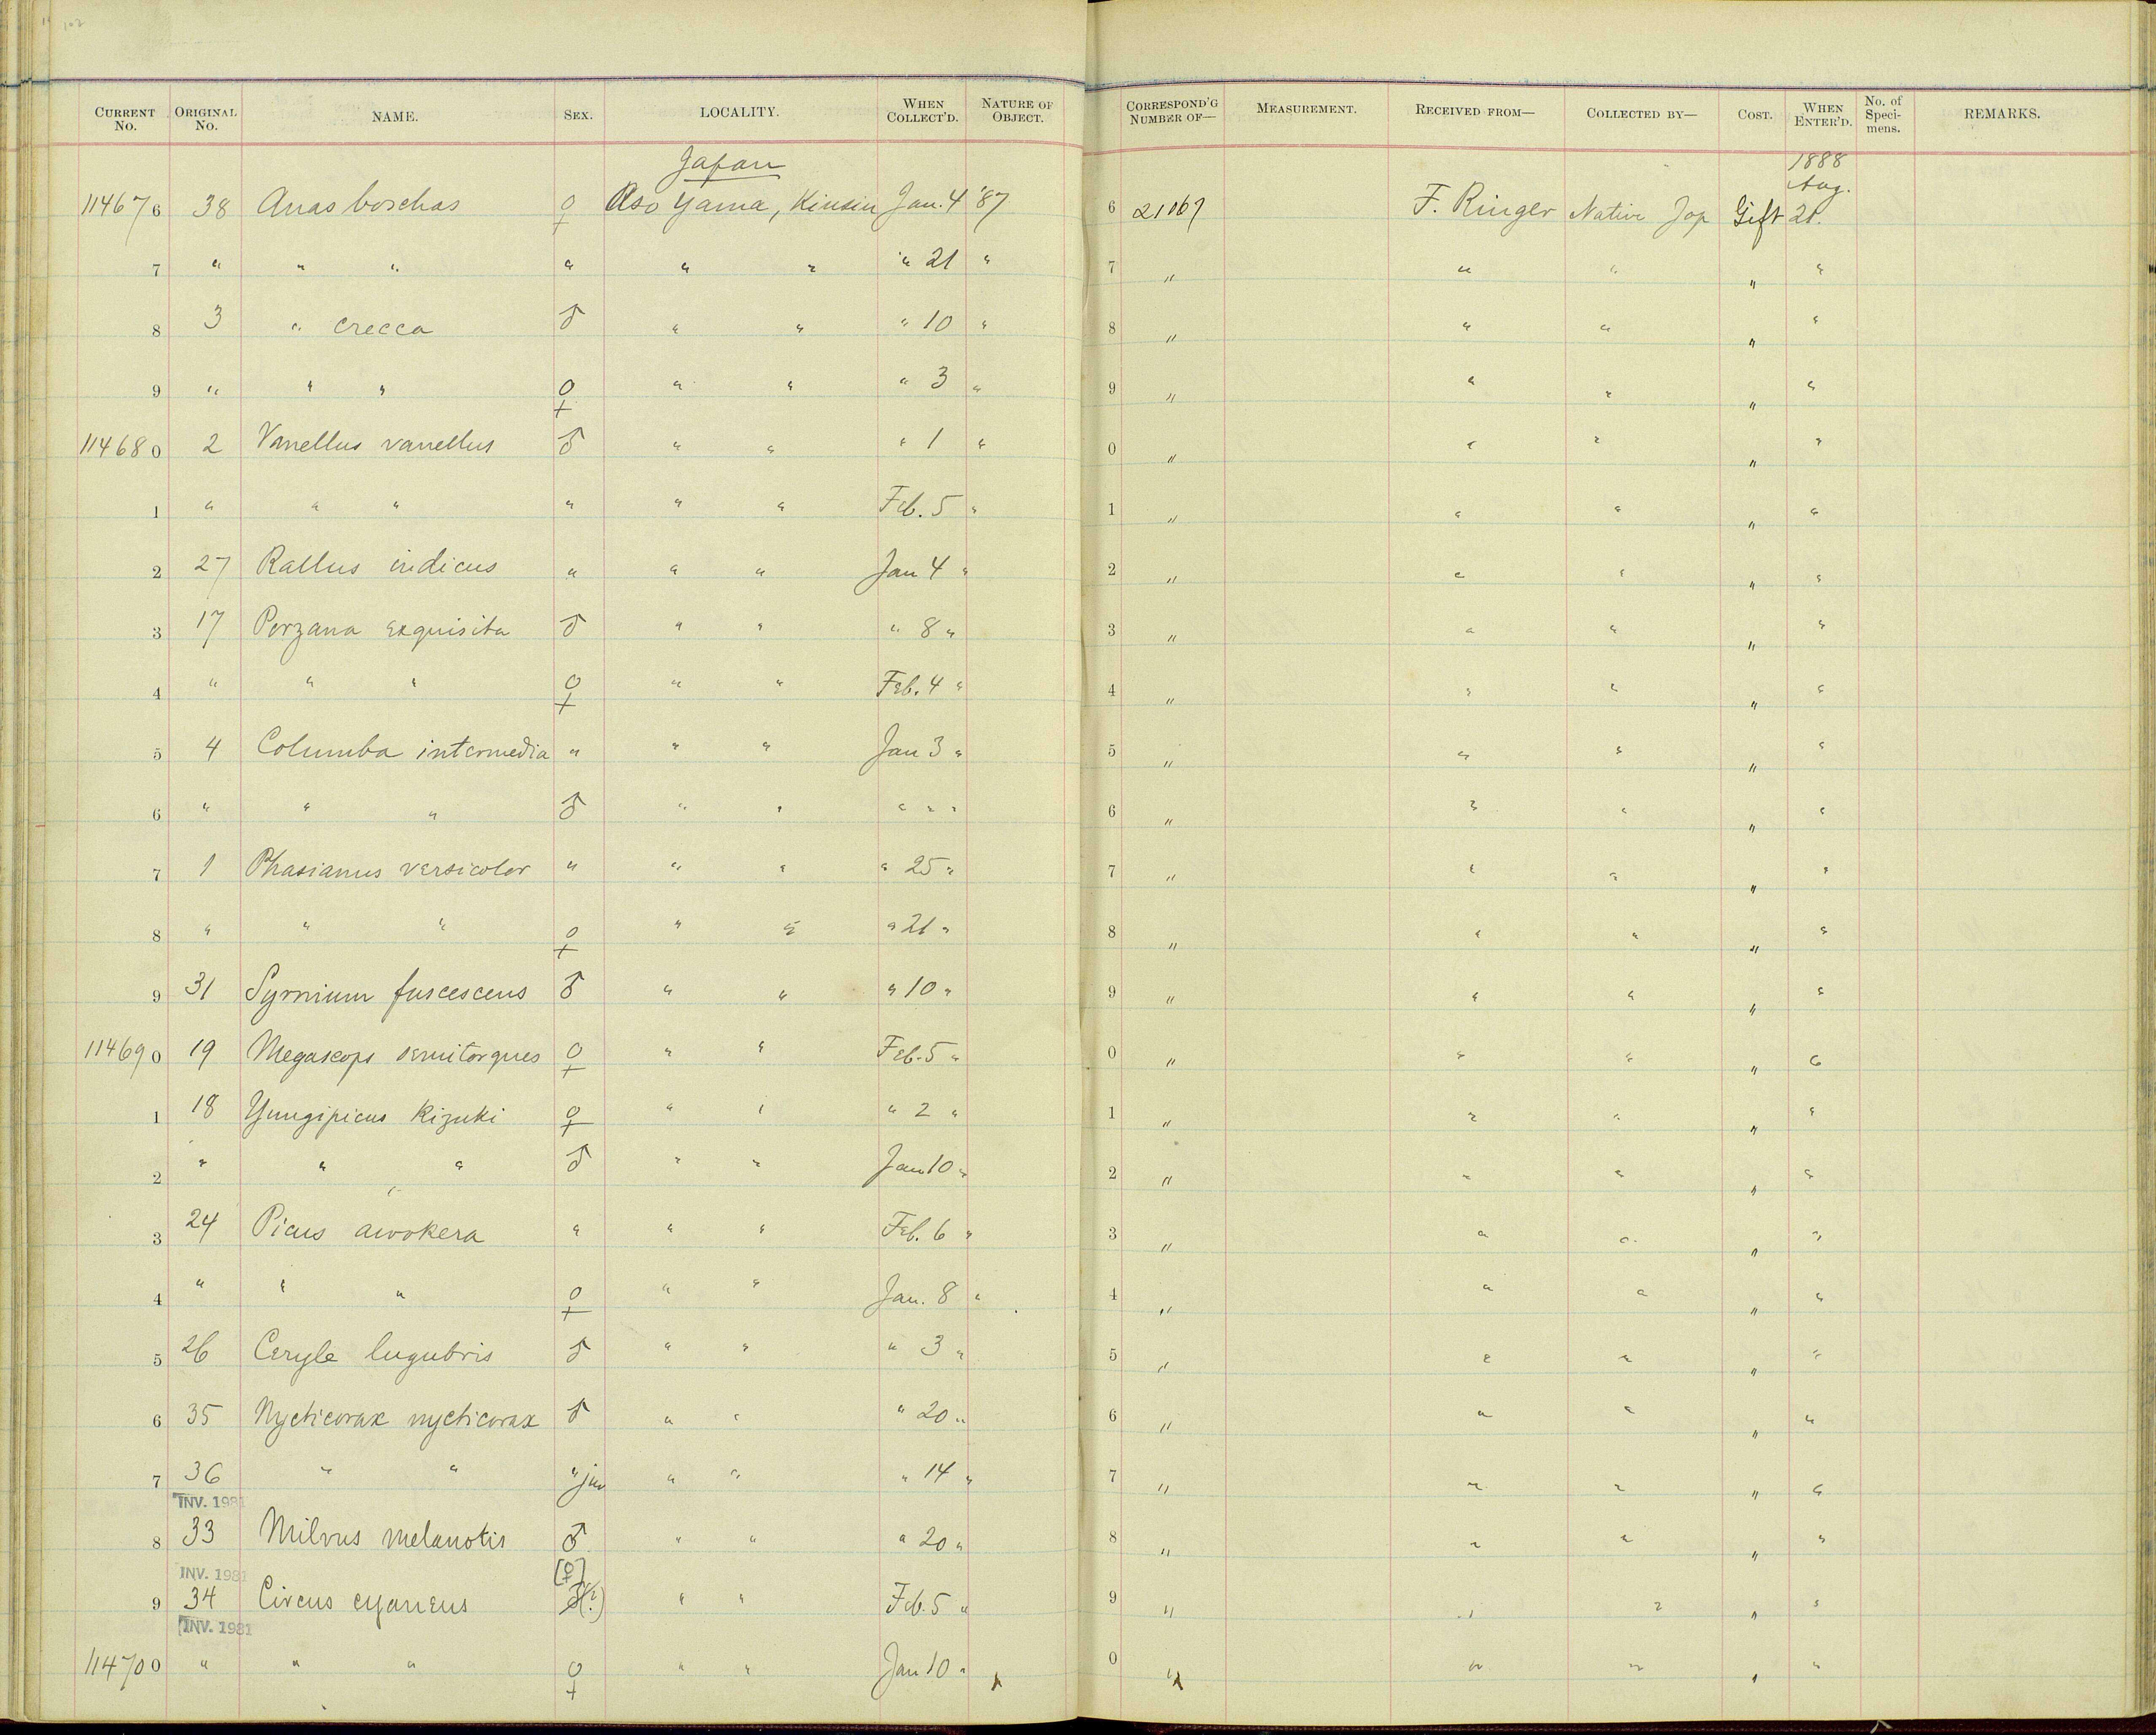 102
CURRENT No. ORIGINAL No. NAME. SEX. LOCALITY. WHEN COLLECT'D. NATURE OF OBJECT. CORRESPOND'G NUMBER OF— MEASUREMENT. RECEIVED FROM— COLLECTED BY— COST. WHEN ENTER'D. No. of Specimens. REMARKS.
Japan 1888
Aug.
114676 38 Anas boschas ♀ Aso Yama, Kiusiu Jan. 4 '87 6 21067 F. Ringer Native Jap Gift 21.
7 " " " " " " " 21 " 7 " " " " "
8 3 " crecca ♂ " " " 10 " 8 " " " " "
9 " " " ♀ " " " 3 " 9 " " " " "
114680 2 Vanellus vanellus ♂ " " " 1 " 0 " " " " "
1 " " " " " " Feb. 5 " 1 " " " " "
2 27 Rallus indicus " " " Jan 4 " 2 " " " " "
3 17 Porzana exquisita ♂ " " " 8 " 3 " " " " "
4 " " " ♀ " " Feb. 4 " 4 " " " " "
5 4 Columba intermedia " " " Jan 3 " 5 " " " " "
6 " " " ♂ " " " " " 6 " " " " "
7 1 Phasianus versicolor " " " " 25 " 7 " " " " "
8 " " " ♀ " " " 21 " 8 " " " " "
9 31 Syrnium fuscescens ♂ " " " 10 " 9 " " " " "
114690 19 Megascops semitorques ♀ " " Feb. 5 " 0 " " " " "
1 18 Yungipicus Kizuki ♀ " " " 2 " 1 " " " " "
2 " " " ♂ " " Jan 10 " 2 " " " " "
3 24 Picus awokera " " " Feb. 6 " 3 " " " " "
4 " " " ♀ " " Jan. 8 " 4 " " " " "
5 26 Ceryle lugubris ♂ " " " 3 " 5 " " " " "
6 35 Nycticorax nycticorax ♂ " " " 20 " 6 " " " " "
7 36 " " " juv " " " 14 " 7 " " " " "
INV. 1981
8 33 Milvus melanotis ♂ " " " 20 " 8 " " " " "
INV. 1981 [♀]
9 34 Circus cyaneus ♂(?) " " Feb. 5 " 9 " " " " "
INV. 1981
114700 " " " ♀ " " Jan 10 " 0 " " " " "